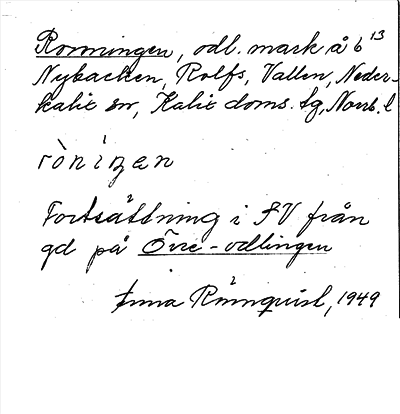 Ronningen, odl. mark å b 13
Nybacken, Rolfs, Vallen, Neder-
kalix sn, Kalix doms. tg, Norrb. l
ròniŋen
Fortsättning i SV från
gd på Övre-odlingen
Anna Rönnquist, 1949